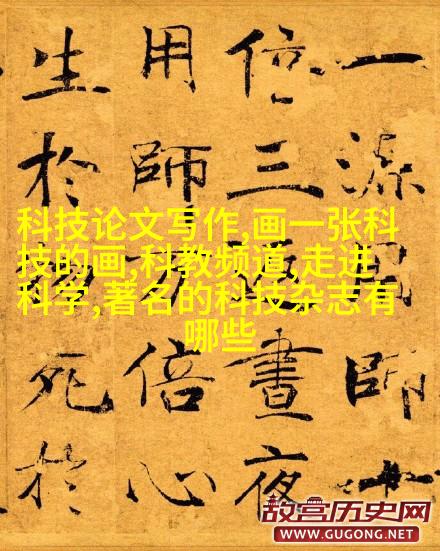 一源用師十
倍三返晝夜
用師万倍心
生於物死於
科技论文写作,画一张科
技的画,科教频道,走进
科学,著名的科技杂志有
哪些
故宫历史网
WWW.GUGONG.NET